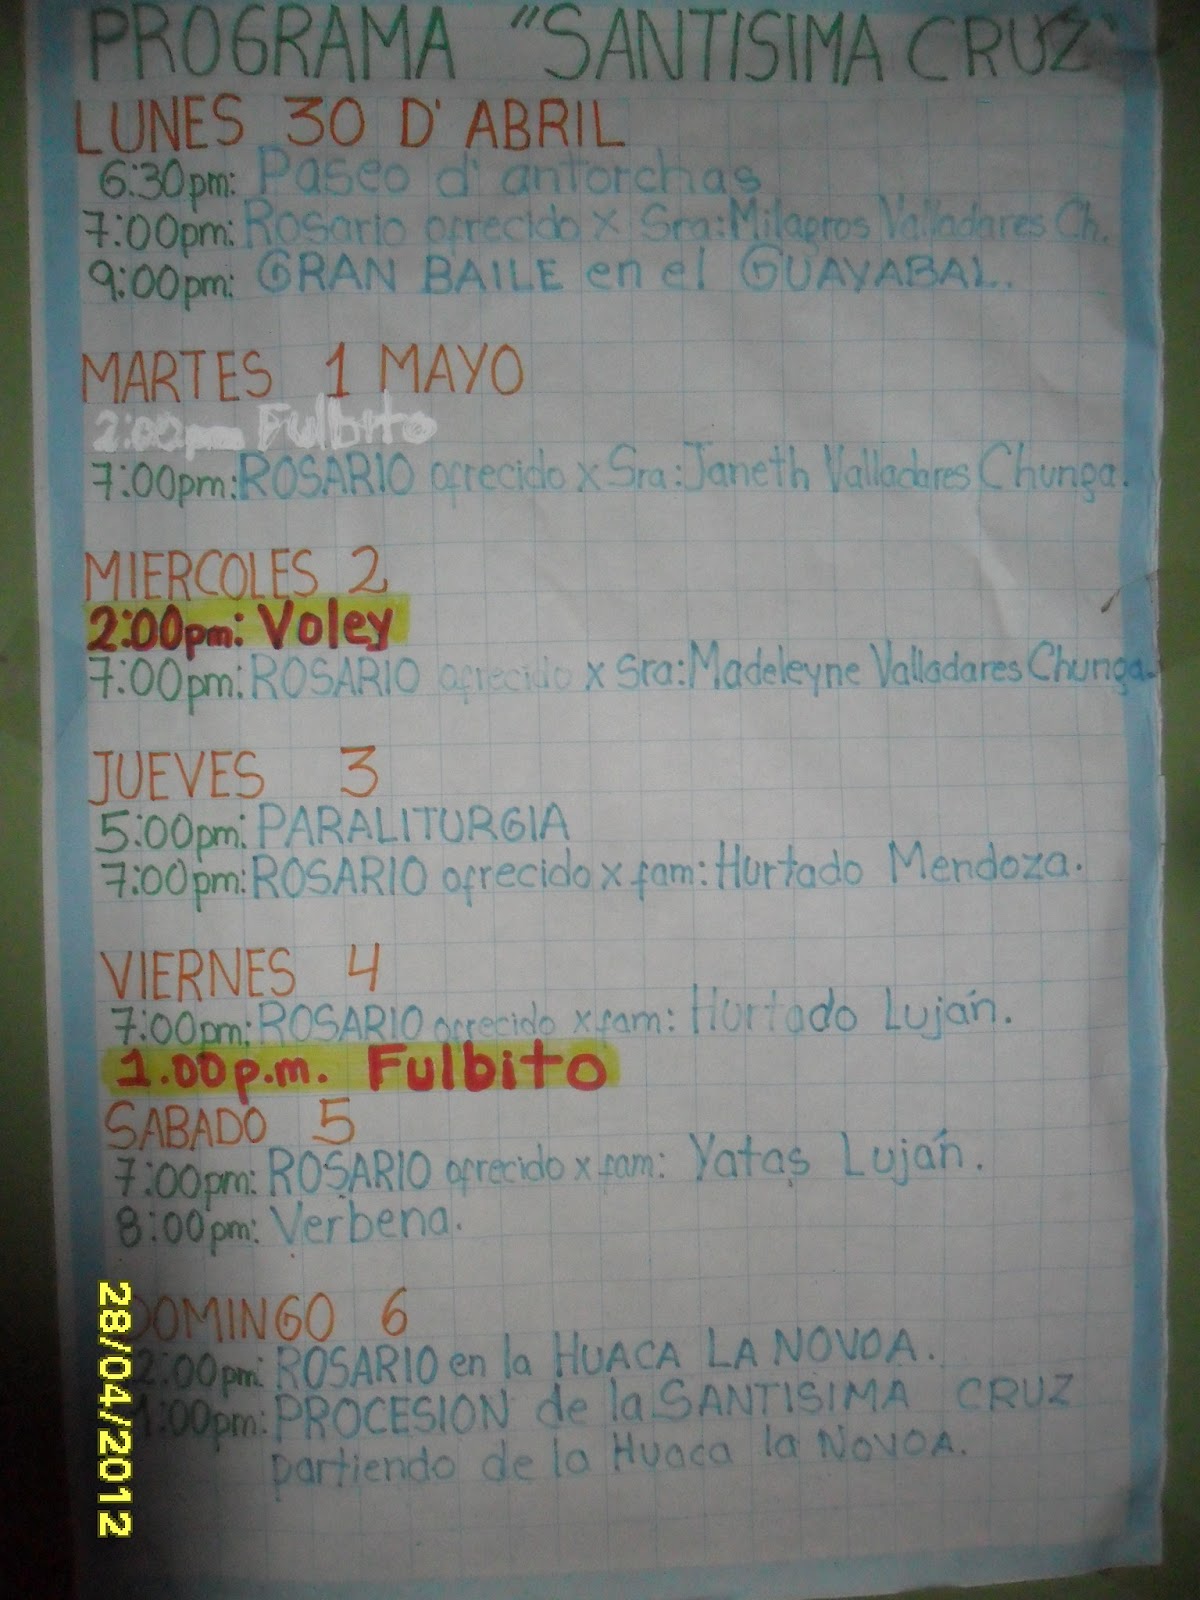 PROGRAMA "SANTISIMA CRUZ"
LUNES 30 D' ABRIL
6:30pm: Paseo d' antorchas
7:00pm: Rosario ofrecido x Sra: Milagros Valladares Ch.
9:00pm: GRAN BAILE en el GUAYABAL.
MARTES 1 MAYO
2:00pm Fulbito
7:00pm: ROSARIO ofrecido x Sra: Janeth Valladares Chunga.
MIERCOLES 2
2:00pm: Voley
7:00pm: ROSARIO ofrecido x Sra: Madeleyne Valladares Chunga.
JUEVES 3
5:00pm: PARALITURGIA
7:00pm: ROSARIO ofrecido x fam: Hurtado Mendoza.
VIERNES 4
7:00pm: ROSARIO ofrecido x fam: Hurtado Luján.
1.00 p.m. Fulbito
SABADO 5
7:00pm: ROSARIO ofrecido x fam: Yatas Luján.
8:00pm: Verbena.
DOMINGO 6
2:00pm: ROSARIO en la HUACA LA NOVOA.
:00pm: PROCESION de la SANTISIMA CRUZ
partiendo de la Huaca la NOVOA.
28/04/2012